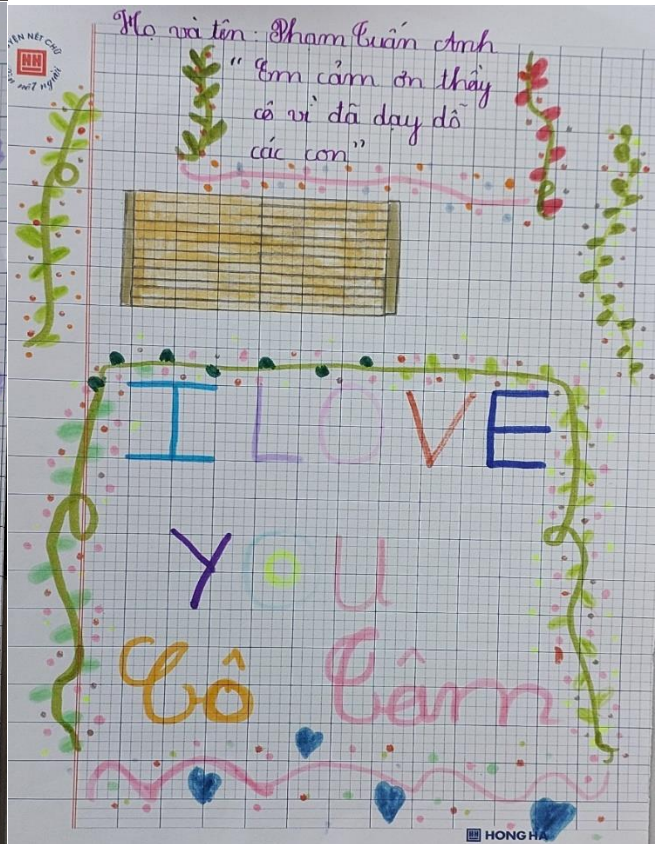 Họ và tên: Phạm Tuấn Anh
“Em cảm ơn thầy
cô vì đã dạy dỗ
các con”
I LOVE
YOU
Cô Tâm
HH HONG HA